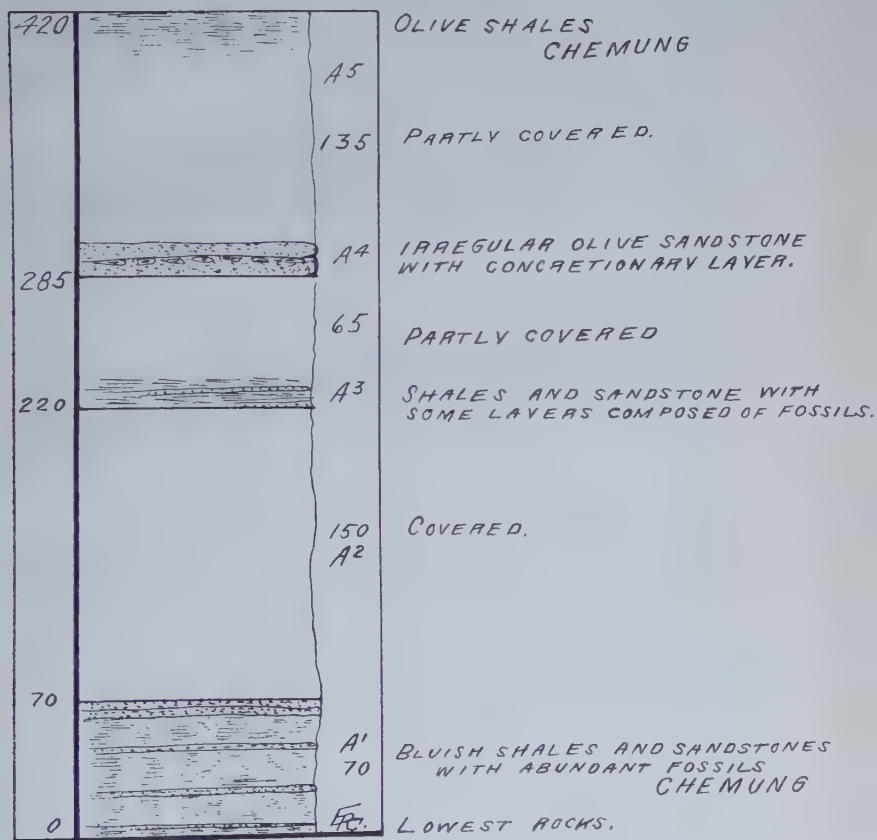 420 OLIVE SHALES
CHEMUNG
A5
135 PARTLY COVERED.
A4 IRREGULAR OLIVE SANDSTONE
WITH CONCRETIONARY LAYER.
285
65 PARTLY COVERED
A3 SHALES AND SANDSTONE WITH
220 SOME LAYERS COMPOSED OF FOSSILS.
150 COVERED.
A2
70
A1 BLUISH SHALES AND SANDSTONES
70 WITH ABUNDANT FOSSILS
CHEMUNG
0 LOWEST ROCKS.